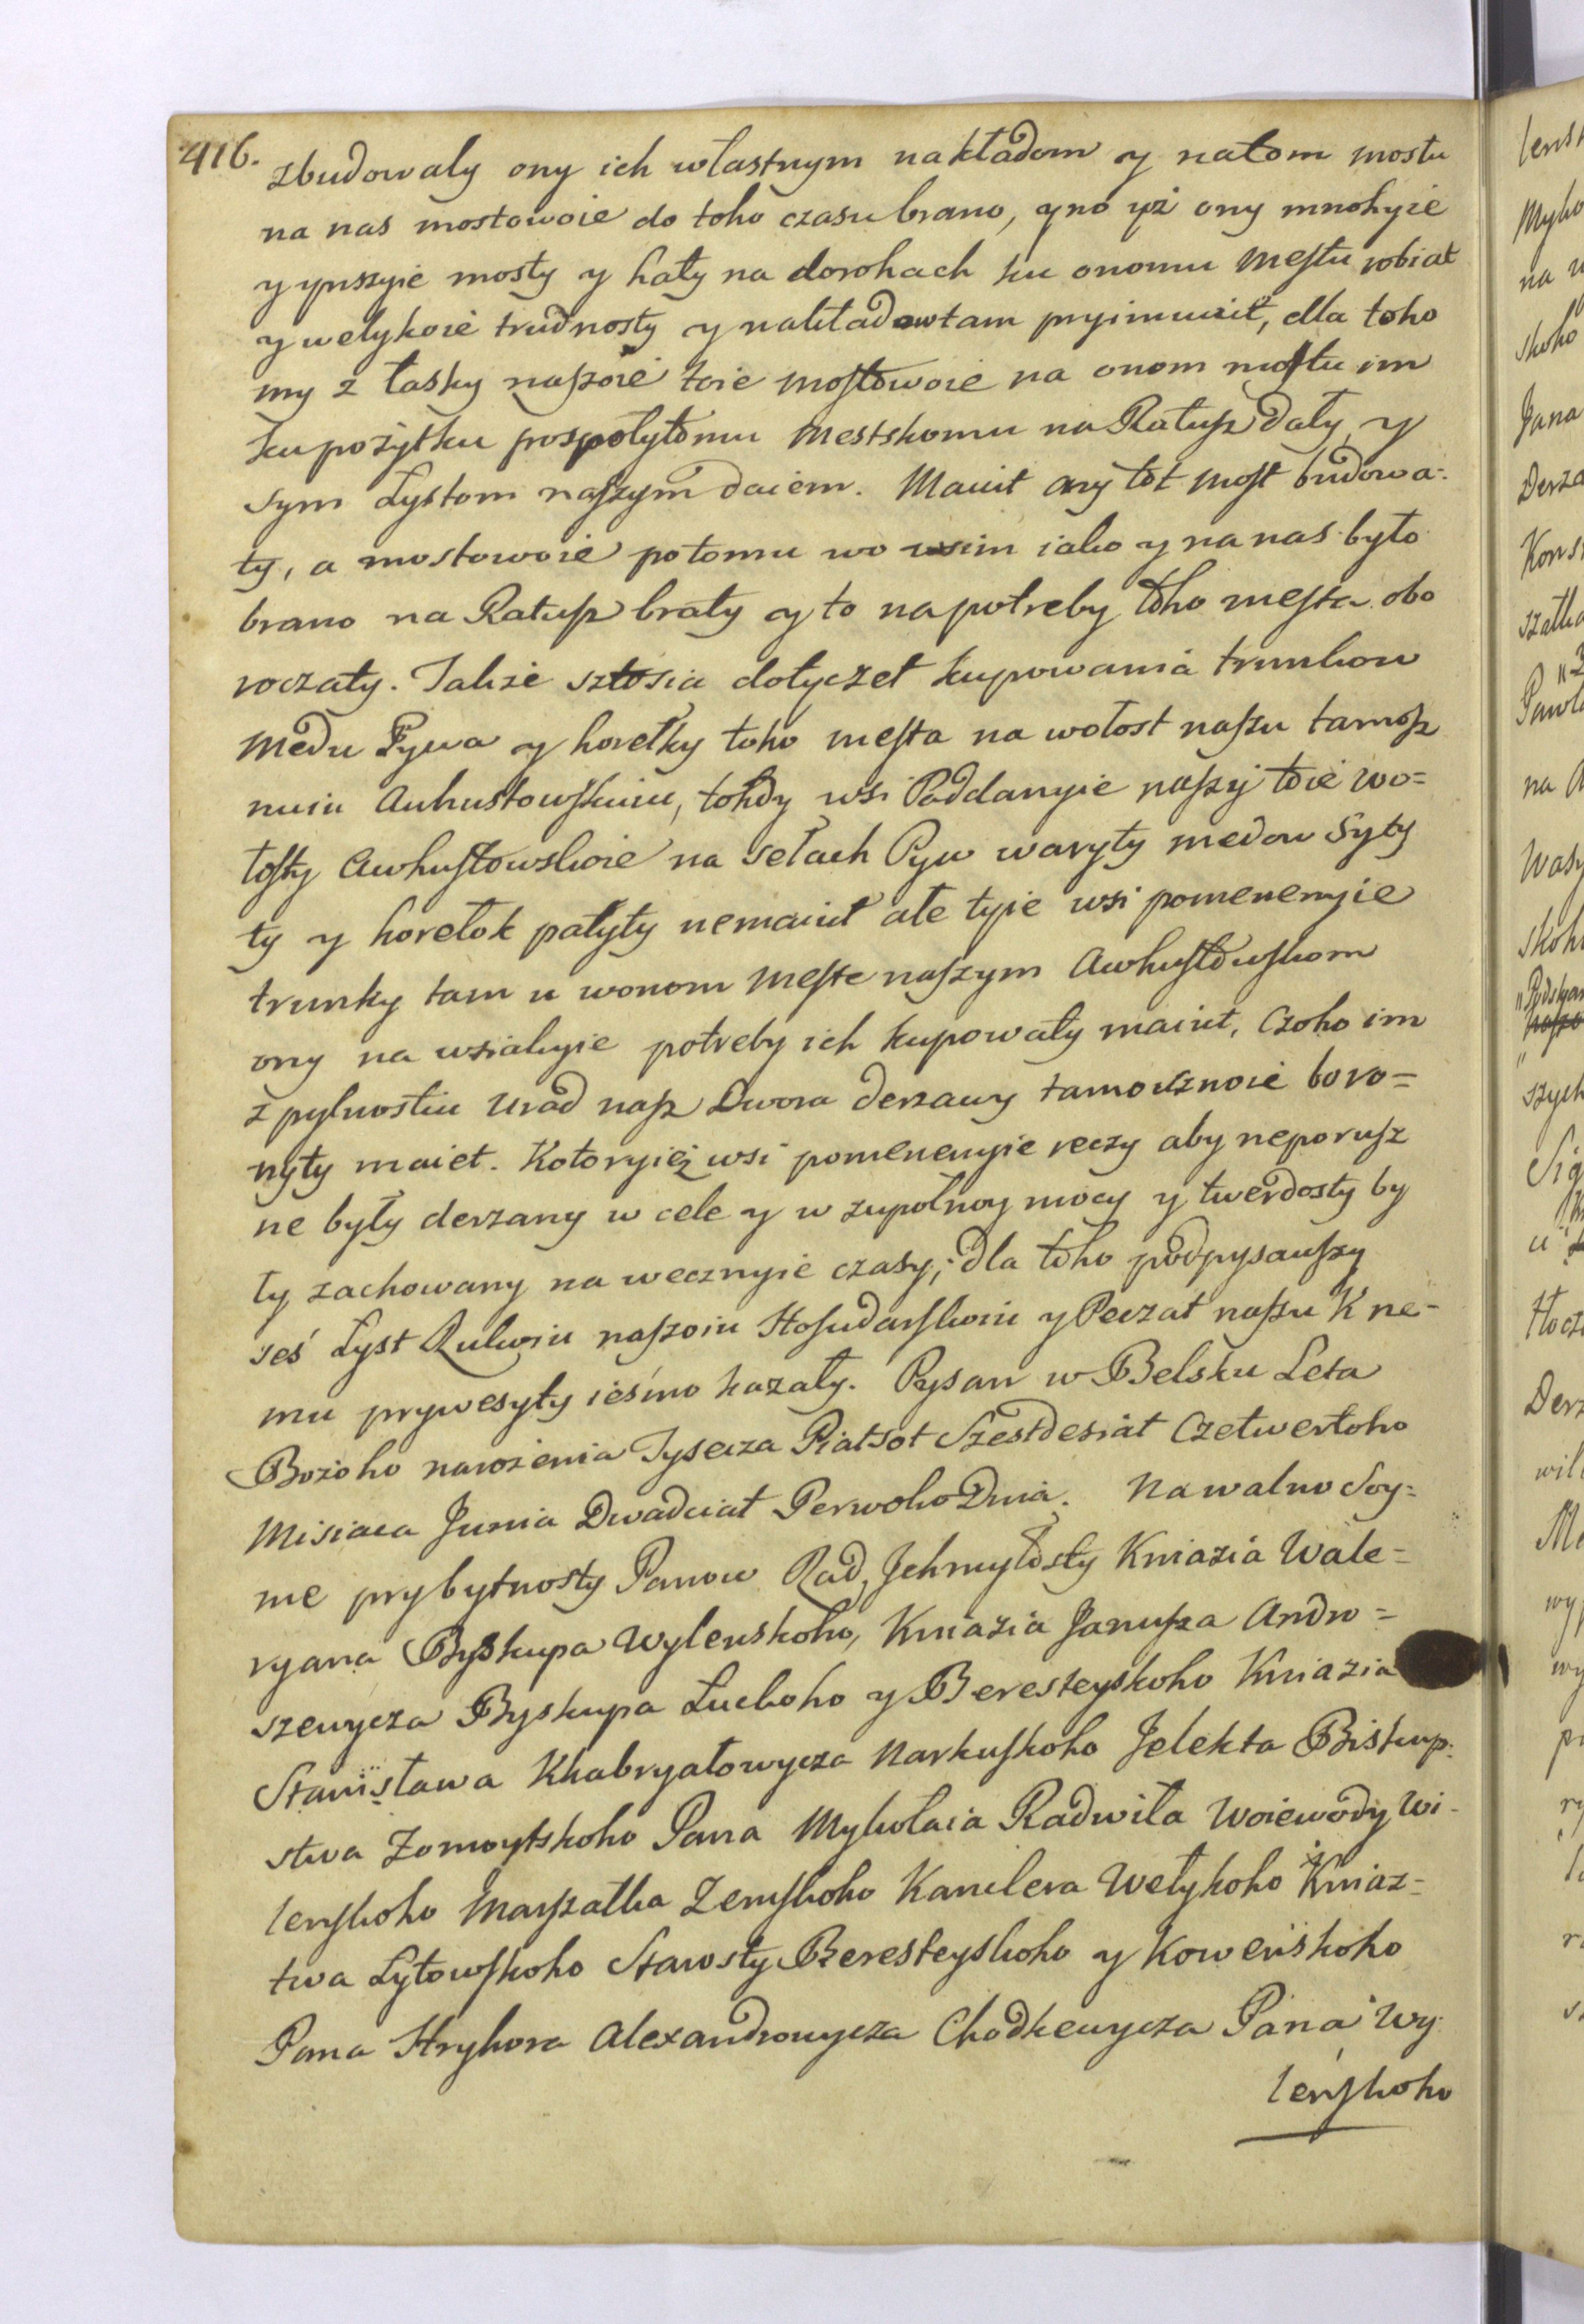 416. zbudowaly ony ich własnym nakładom y natom mostu
na nas mostowoie do toho czasu brano, yno yż ony mnohyie
y ynszyie mosty y haty na dorohach ku onomu Mestu robiat
y welykoie trudnosty y nakładow tam pryimuiut, dla toho
my z łasky naszoie toie mostowoie na onom mostu im
ku pożytku pospolytomu Mestskomu na Ratusz dały y
sym Lystom naszym daiem. Maiut ony tot most budowa-
ty, a mostowoie potomu wo wsim iako y na nas było
brano na Ratusz braty y to na potreby toho mesta obo
roczaty. Także sztosia dotyczet kupowania trunkow
Medu Pywa y horełky toho mesta na wołost naszu tamosz
nuiu Auhustowskuiu, tohdy wsi Poddanyie naszy toie wo=
łosty Awhustowskoie na sełach Pyw waryty medow Syty
ty y horełok patyty nemaiut ale tyie wsi pomenenyie
trunky tam u wonom Meste naszym Awhustowskom
ony na wsiakyie potreby ich kupowaty maiut, czoho im
z pylnostiu Urad nasz Dwora derzawy tamosznoie boro=
nyty maiet. Kotoryież wsi pomenenyie reczy aby neporusz
ne były derzany w cele y w zupołnoy mocy y twerdosty by
ły zachowany na wecznyie czasy; dla toho podpysauszy
seś Lyst Rukoiu naszoiu Hosudarskoiu y Peczat naszu K ne-
mu prywesyty ieśmo kazały. Pysan w Belsku Leta
Bożoho narożenia Tysecza Piatsot Szestdesiat Czetwertoho
Misiaca Junia Dwadciat Perwoho Dnia. Na walno Soy=
me prybytnosty Panow Rad, Jehmyłosty Kniazia Wale=
ryana Byskupa Wylenskoho, Kniazia Janusza Andru=
szewycza Byskupa Łuckoho y Beresteyskoho Kniazia
Stanisława Khabryałowycza Narkuskoho Jelekta Biskup-
stwa Żomoytskoho Pana Mykołaia Radwiła Woiewody Wi-
lenskoho Marszałka Zemskoho Kanclera Wełykoho Kniaz=
twa Lytowskoho Starosty Beresteyskoho y Kowenskoho
Pana Hryhora Alexandrowycza Chodkewycza Pana Wy
lenskoho